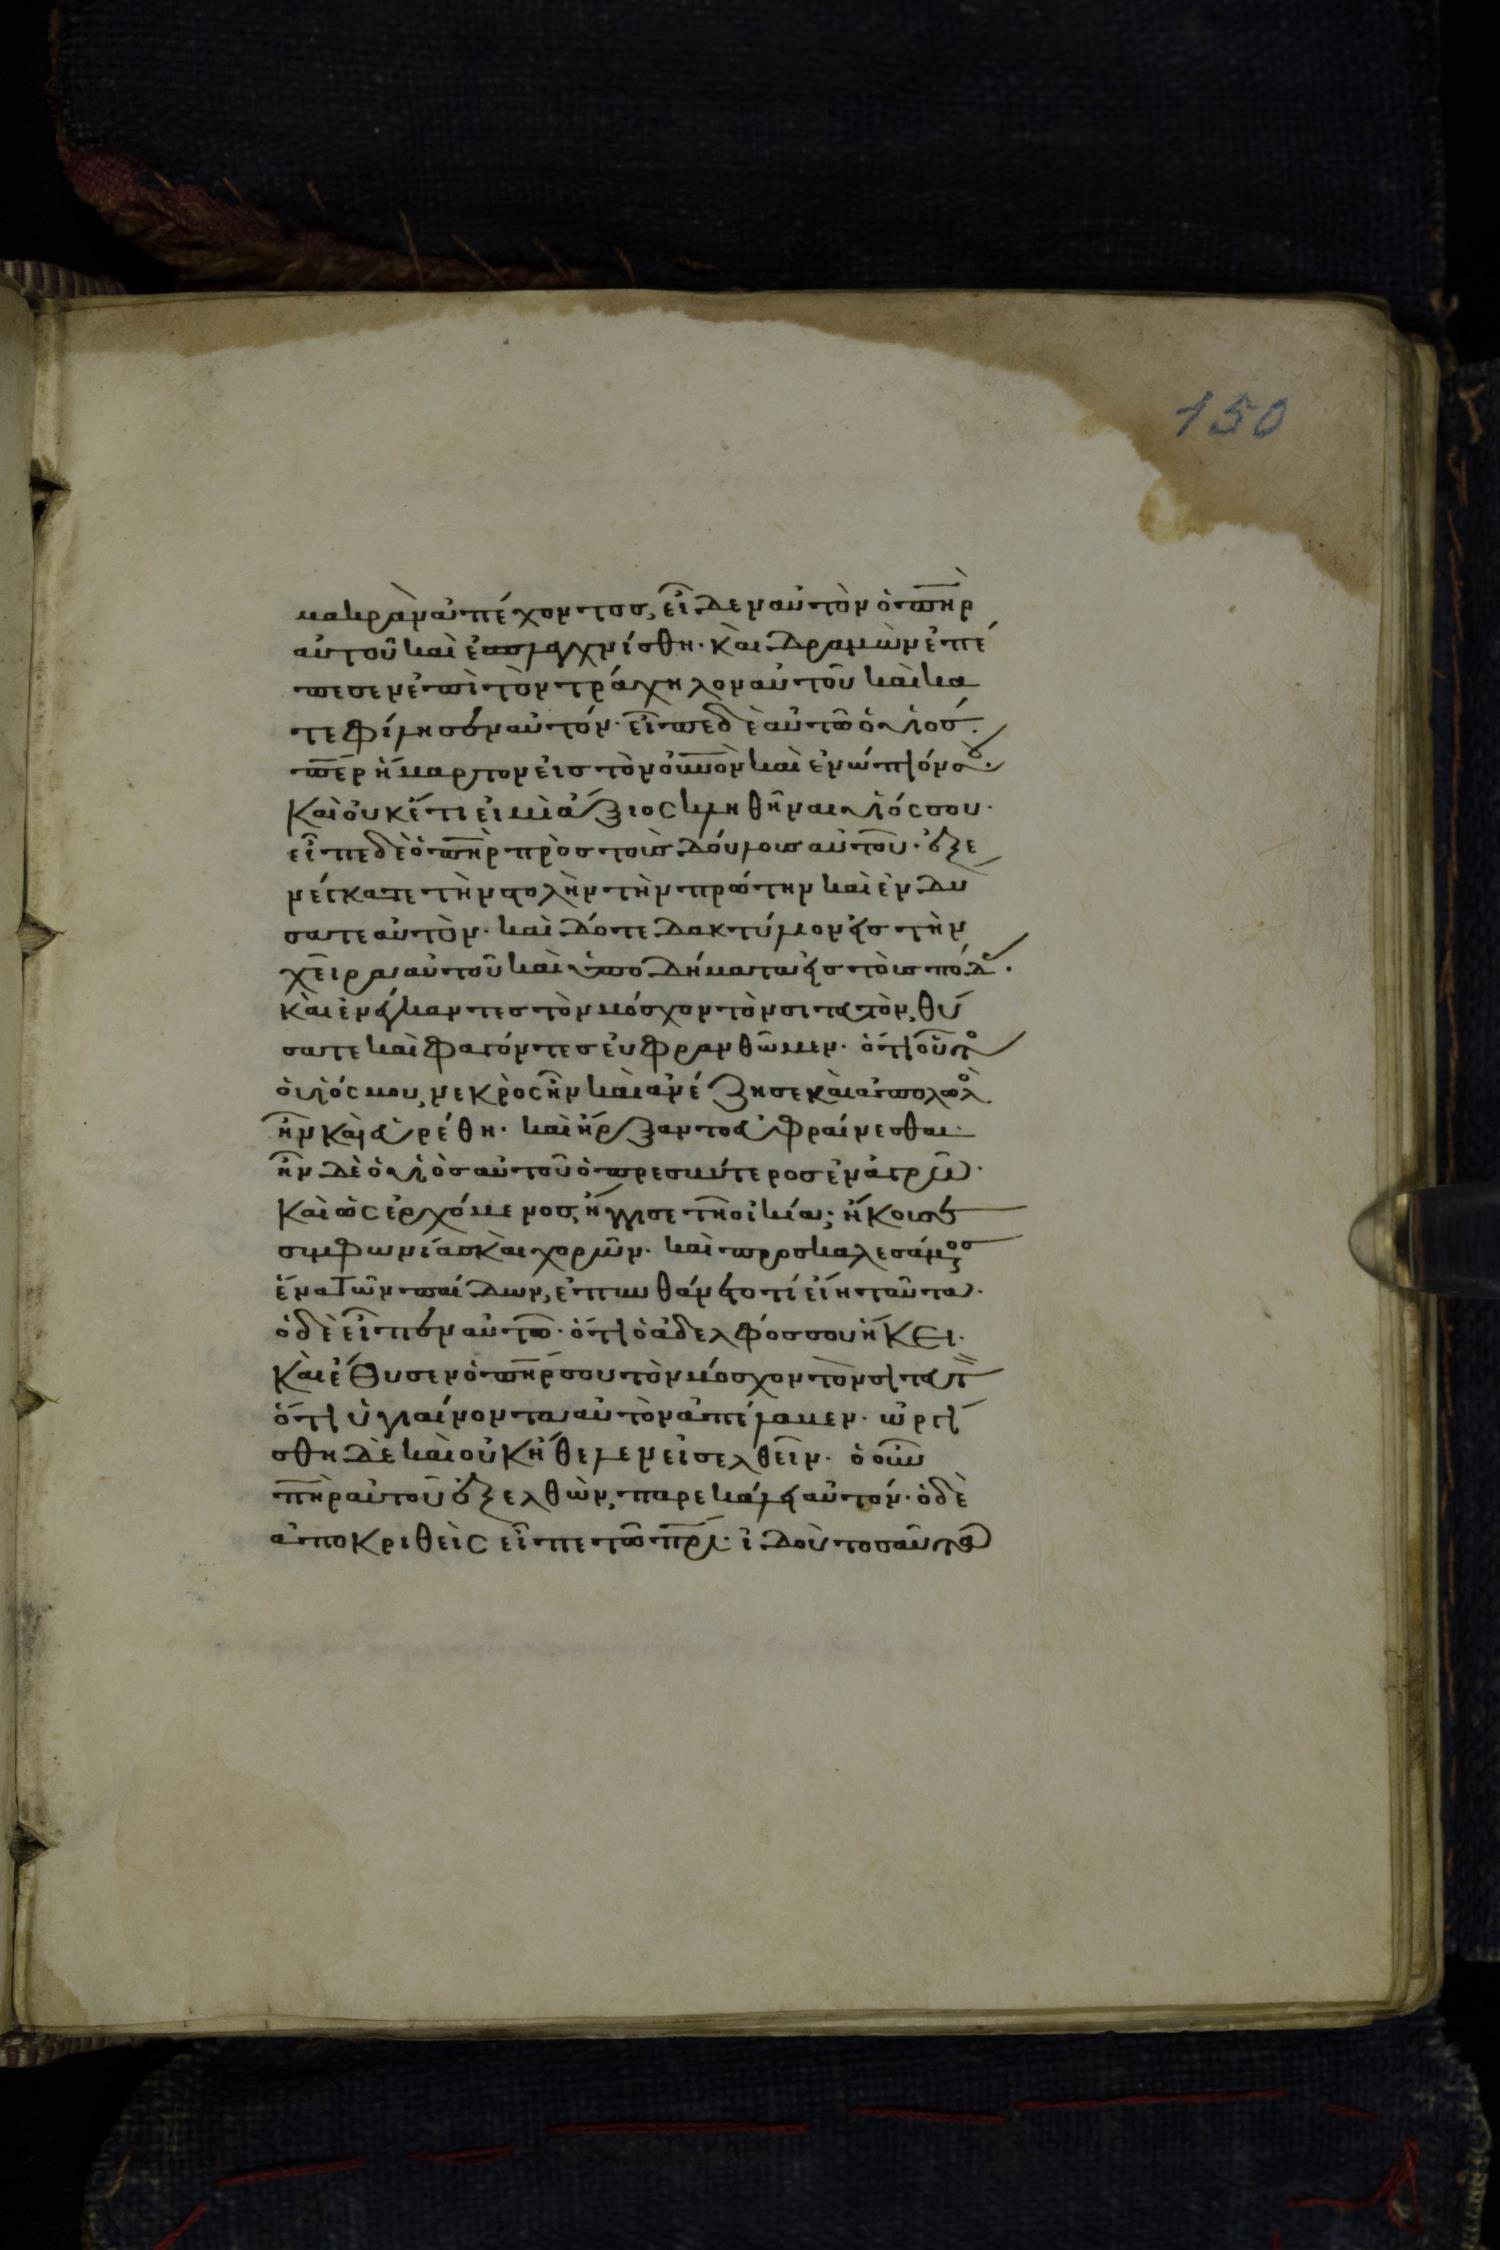 150
μακρὰν ἀπέχοντος, εἶδεν αὐτὸν ὁ π̅η̅ρ̅
αὐτοῦ καὶ ἐσπλαχνίσθη· καὶ δραμὼν ἐπέ
πεσεν ἐπὶ τὸν τράχηλον αὐτοῦ καὶ κα
τεφίλησεν αὐτόν· εἶπε δὲ αὐτῶ ὁ υἱός·
π̅ε̅ρ̅ ἥμαρτον εἰς τὸν ο̅υ̅ν̅ο̅ν̅ καὶ ἐνώπιόν σου·
Καὶ οὐκέτι εἰμὶ ἄξιος κληθῆναι υἱός σου·
εἶπε δὲ ὁ π̅η̅ρ̅ πρὸς τοὺς δούλους αὐτοῦ· ἐξε
νείκατε τὴν στολὴν τὴν πρώτην καὶ ἐνδύ
σατε αὐτὸν· καὶ δότε δακτύλιον εἰς τὴν
χεῖρα αὐτοῦ καὶ ὑποδήματα εἰς τοὺς πόδ·
καὶ ἐνέγκαντες τὸν μόσχον τὸν σιτευτὸν, θύ
σατε καὶ φαγόντες εὐφρανθῶμεν· ὅτι οὗτο
ὁ υἱός μου, νεκρὸς ἦν καὶ ἀνέζησε καὶ ἀπολωλὸ
ἦν καὶ εὑρέθη· καὶ ἤρξαντο εὐφραίνεσθαι·
ἦν δὲ ὁ υἱὸς αὐτοῦ ὁ πρεσβύτερος ἐν ἀγρῶ·
Καὶ ὡς ἐρχόμενος, ἤγγισε τῆ οἰκία; ἤκουσε
συμφωνίας καὶ χορῶν· καὶ προσκαλεσάμενος
ἕνα τῶν παίδων, ἐπυνθάνετο τί εἴη ταῦτα·
ὁ δὲ εἶπεν αὐτῶ· ὅτι ὁ ἀδελφός σου ἥκει·
Καὶ ἔθυσεν ὁ π̅η̅ρ̅ σου τὸν μόσχον τὸν σιτευτ
ὅτι ὑγιαίνοντα αὐτὸν ἀπέλαβεν· ὠργί
σθη δὲ καὶ οὐκ ἤθελεν εἰσελθεῖν· ὁ οὖν
π̅η̅ρ̅ αὐτοῦ ἐξελθὼν, παρεκάλει αὐτόν· ὁ δὲ
ἀποκριθεὶς εἶπε τῶ π̅ρ̅ι̅· ἰδοὺ τοσαῦτα